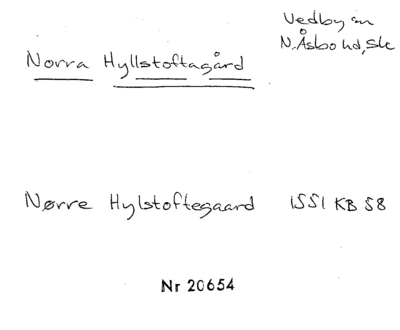 Vedby sn
N. Åsbo hd, Sk
Norra Hyllstoftagård
Nørre Hylstoftegaard 1551 KB 58
Nr 20654